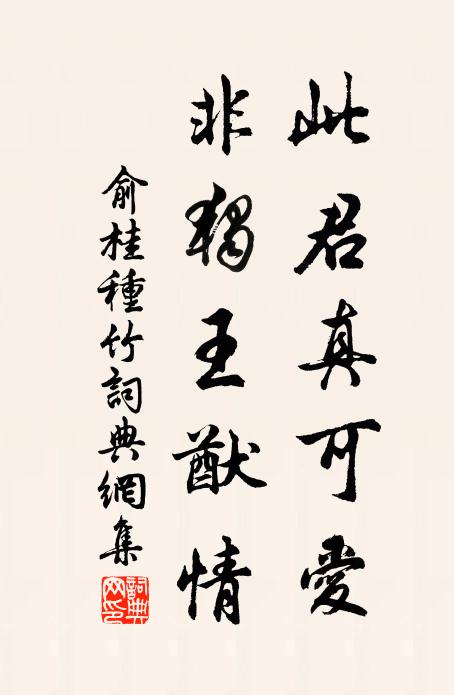 此君真可愛
非獨王猷情
俞桂種竹詞典網集
詞典網印